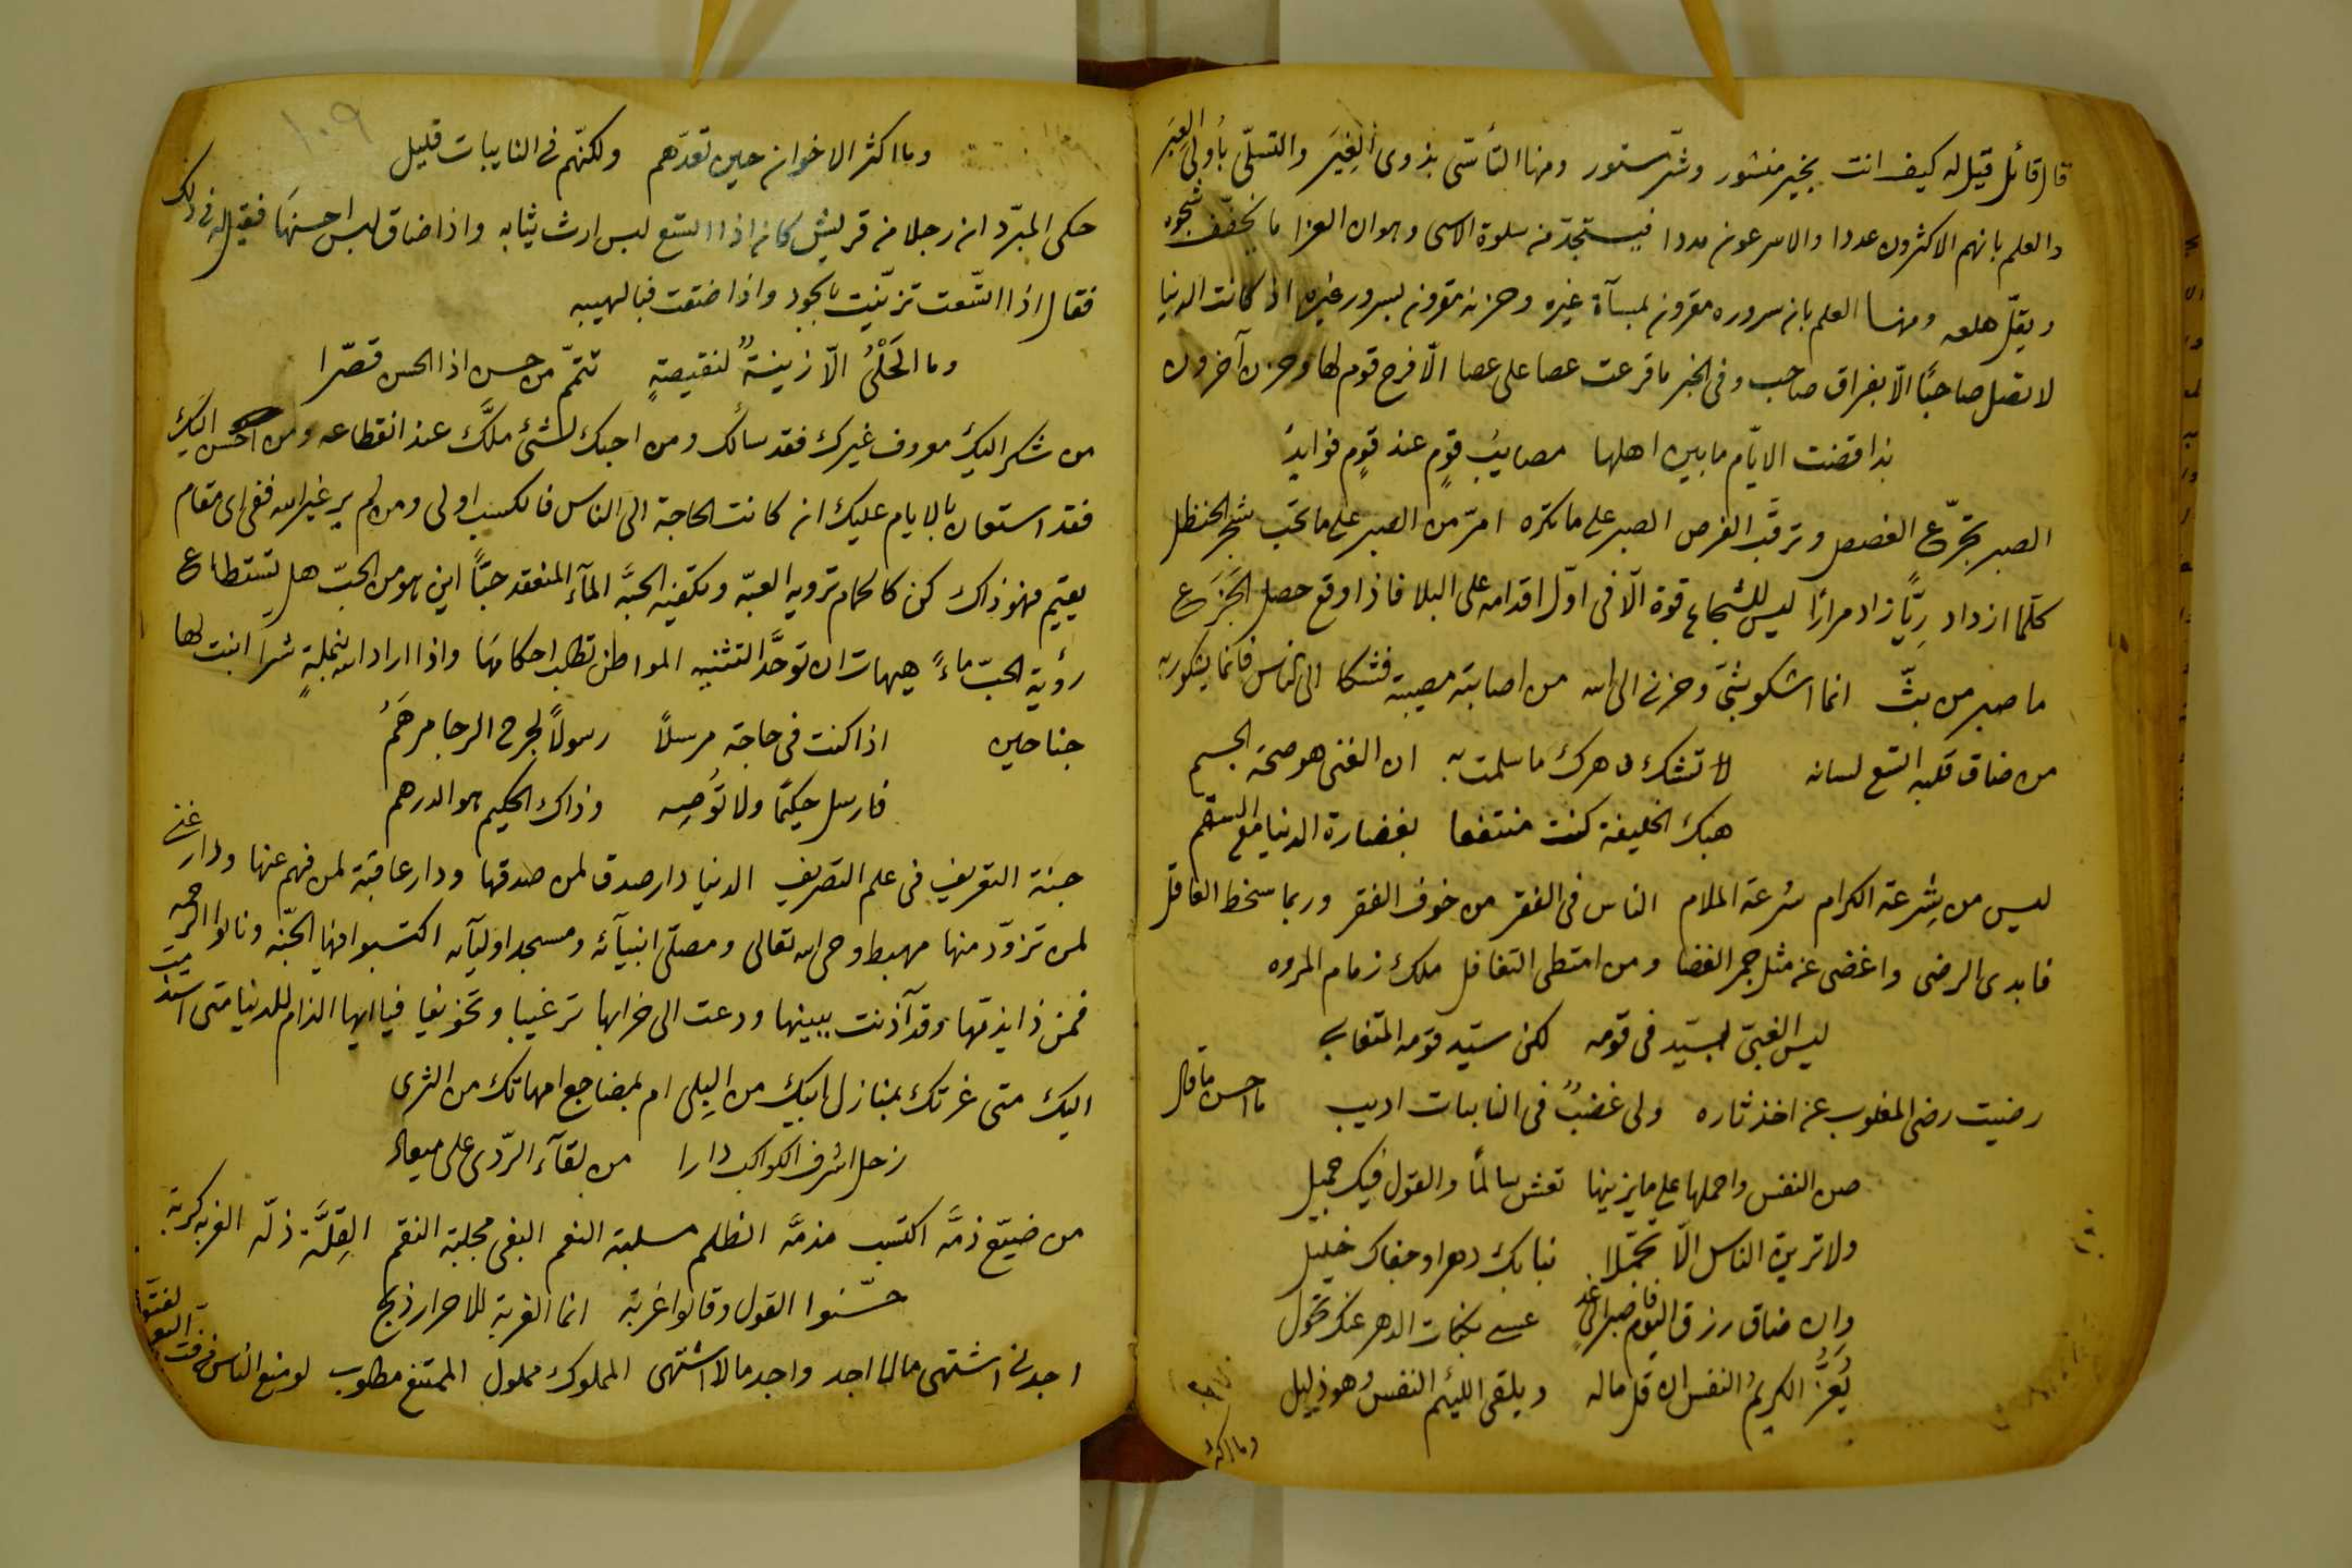 قال قائل قيل له كيف انت بخير منشور وشر مستور ومنها التأسّى بذوى الغِيَر والتسلّى بأولى العِبَر
والعلم بانهم الاكثرون عددا والاسرعون مددا فيستجدّ من سلوة الاسى وهوان العزا ما يخفّف شجوه
ويقلّ هلعه ومنها العلم بان سروره مقرون بمسآة غيره وحزنه مقرون بسرور غيره اذ كانت الدنيا
لا تصل صاحبًا الّا بفراق صاحب وفى الخبر ما قرعت عصا على عصا الّا فرح قوم لها وحزن آخرون
بذا قضت الايّام ما بين اهلها مصايب قومٍ عند قومٍ فوايدُ
الصبر تجرّع الغصص وترقّب الفرص الصبر على ما تكره امرّ من الصبر على ما تحب شجر الحنظل
كلّما ازداد رِيًّا زاد مرارًا ليس للشجاع قوة الّا فى اوّل اقدامه على البلا فاذا وقع حصل الجَزَع
ما صبر من بثّ انما اشكو بثى وحزنى الى الله من اصابته مصيبة فشكا الى الناس فانما يشكو ربه
من ضاق قلبه اتسع لسانه لا تشك دهرك ما سلمت به ان الغنى هو صحة الجسم
هبك الخليفة كنت منتفعا بغضارة الدنيا مع السقم
ليس من شِرعة الكرام سُرعة الملام الناس فى الفقر من خوف الفقر وربما سخط العاقل
فابدى الرضى واغضى عن مثل جمر الغضا ومن امتطى التغافل ملك زمام المروه
ليس الغبىّ بسيّد فى قومه لكن سيّد قومه المتغابى
رضيت رضى المغلوب عن اخذ ثاره ولى غضبٌ فى النايبات اديب ما احسن ما قال
صن النفس واحملها على ما يزينها تعش سالمًا والقول فيك جميل
ولا ترينّ الناس الّا تجمّلا نبا بك دهر او جفاك خليل
وان ضاق رزق اليوم فاصبر الى غد عسى نكبات الدهر عنك تحول
يُعَزُّ الكريمُ النفس ان قل ماله ويلقى اللئيم النفسُ وهو ذليل
وما اكثر
١٠٩
وما اكثر الاخوان حين تعدّهم ولكنّهم فى النايبات قليل
حكى المبرّد ان رجلا من قريش كان اذا اتسع لبس ارث ثيابه واذا ضاق لبس احسنها فقيل له فى ذلك
فقال اذا اتّسعت تزيّنت بالجود واذا ضقت فبالهيبه
وما الحَلْىُ الّا زينةٌ لنقيصةٍ تتمّم من حسن اذا الحسن قصّرا
من شكر اليك معروف غيرك فقد سالك ومن احبك لشئ ملّك عند انقطاعه ومن احسن اليك
فقد استعان بالايام عليك ان كانت الحاجة الى الناس فالكسب اولى ومن لم ير غير الله ففى اى مقام
يقيم فهو ذاك كن كالحمام ترويه العبّه وتكفيه الحبّه المآء المنعقد حبًّا اين هو من الحبّ هل يستطاع
رؤية الحبّ ماءً هيهات ان توحَّد التثنيه المواطن تطلب احكامها واذا اراد الله بنملةٍ شرا انبت لها
جناحين اذا كنت فى حاجة مرسلاً رسولاً لجرح الرجا مرهَمُ
فارسل حكيمًا ولا تُوصِه وذاك الحكيم هو الدرهم
جنة التعريف فى علم التصريف الدنيا دار صدق لمن صدقها ودار عاقبة لمن فهم عنها ودار غنى
لمن تزوّد منها مهبط وحى الله تعالى ومصلّى انبيآئه ومسجد اوليآئه اكتسبوا فيها الجنّه ونالوا الرحمه
فمن ذا يذمّها وقد آذنت ببينها ودعت الى خرابها ترغيبا وتخويفا فيا ايها الذام للدنيا متى استذمت
اليك متى غرتك بمنازل ابيك من البِلى ام بمضاجع امهاتك من الثرى
زحل اشرف الكواكب دارا من لقآء الرّدى على ميعاد
من ضيّع ذمَّه اكتسب مذمَّه الظلم مسلبة النعم البغى مجلبة النقم القِلَّة ذلّه الغربه كربة
حسّنوا القول وقالوا غربة انما الغربة للاحرار ذبح
اجدنى اشتهى مالا اجد واجد مالا اشتهى المملوك مملول الممتنع مطلوب لو منع الناس من فت البعر لفتّوه